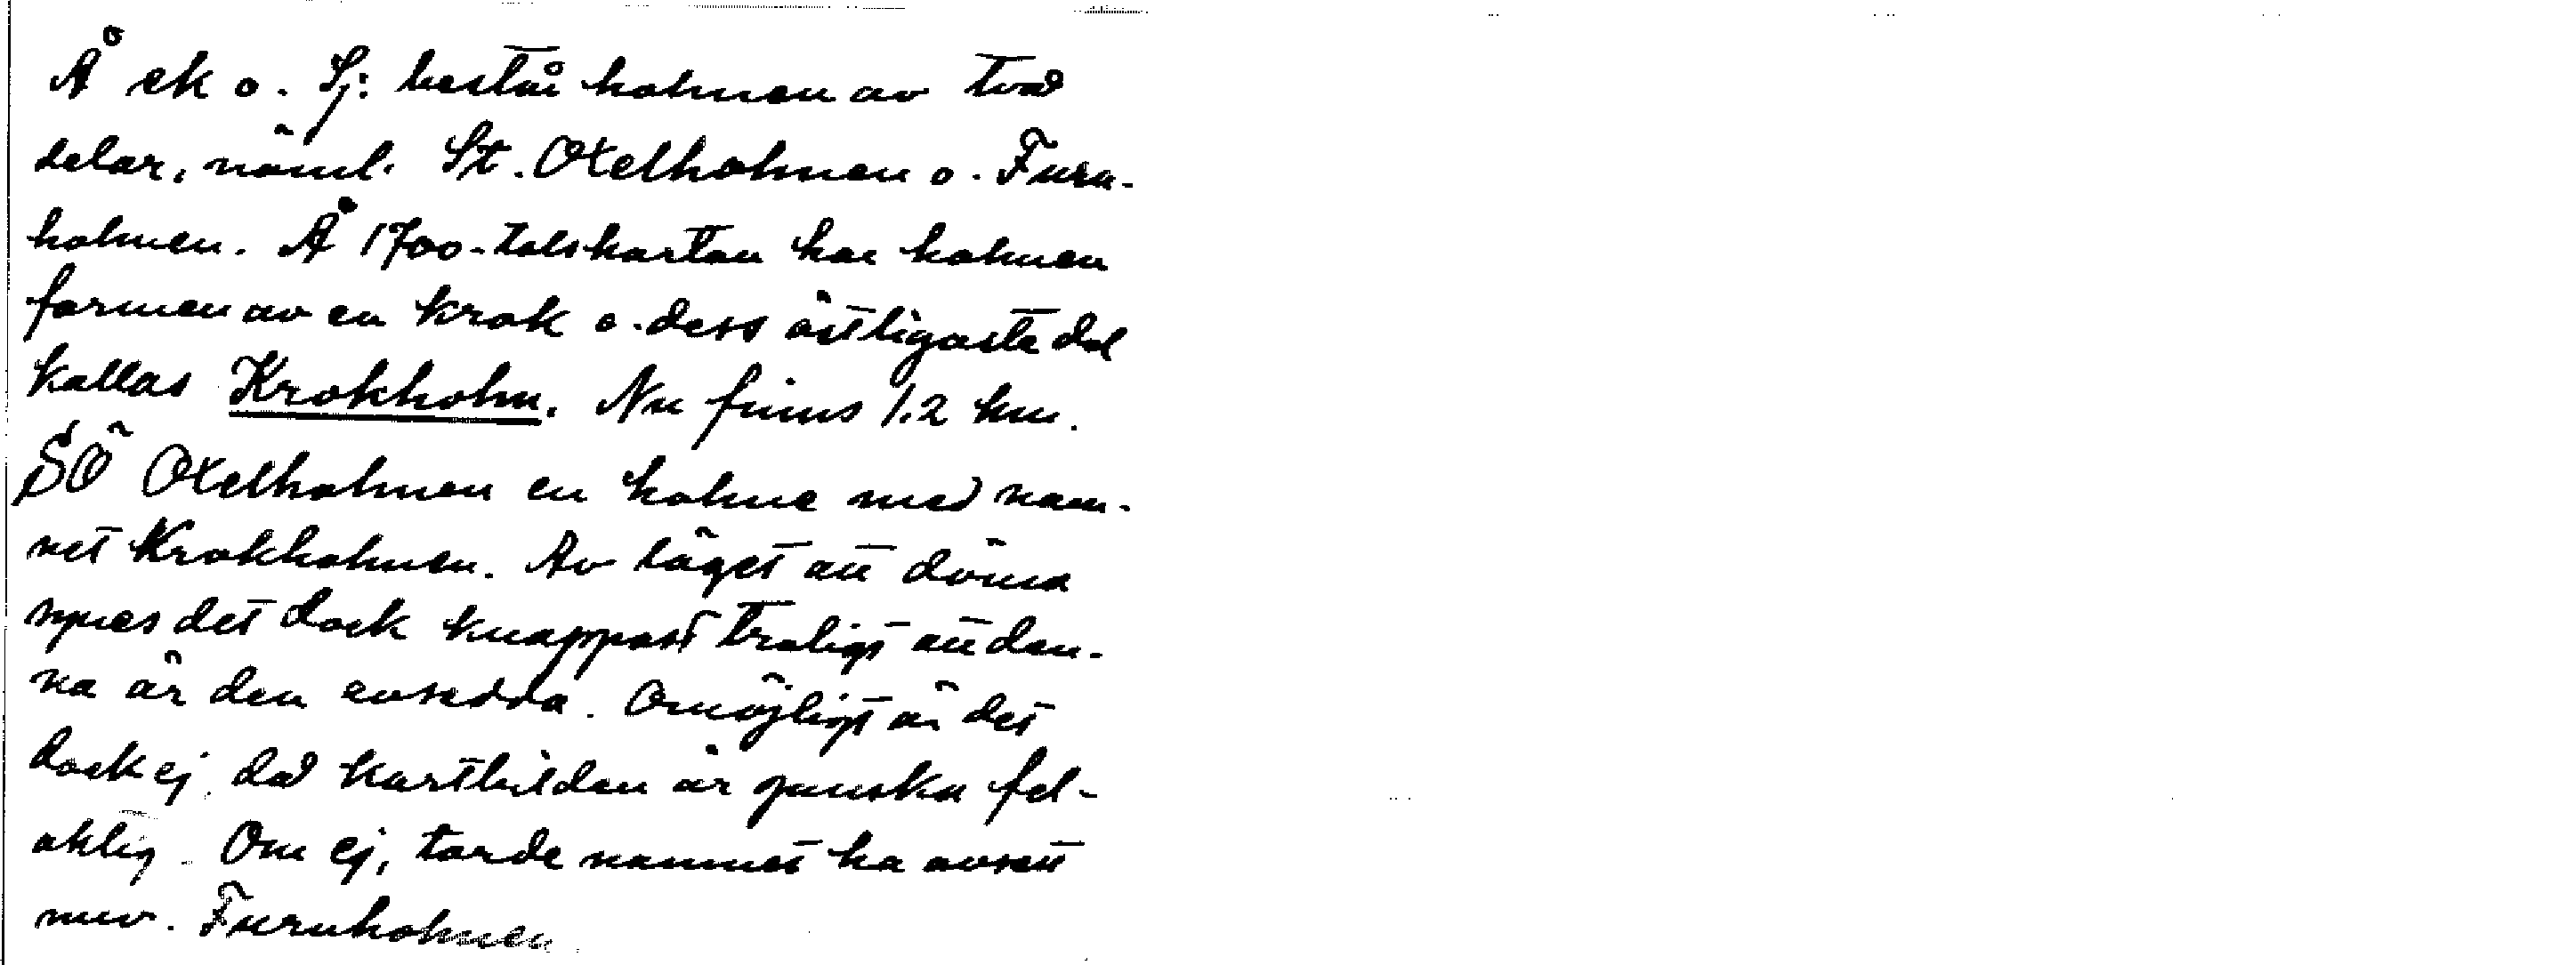 Å ek o. Sj: består holmen av två
delar, näml. St. Oxelholmen o. Furu-
holmen. Å 1700-talskartan har holmen
formen av en krok o. dess östligaste del
kallas Krokholm. Nu finns 1.2 km.
SÖ Oxelholmen en holme med nam-
net Krokholmen. Av läget att döma
synes det dock knappast troligt att den-
na är den avsedda. Omöjligt är det
dock ej, då kartbilden är ganska fel-
aktig. Om ej, torde namnet ha avsett
nuv. Furuholmen